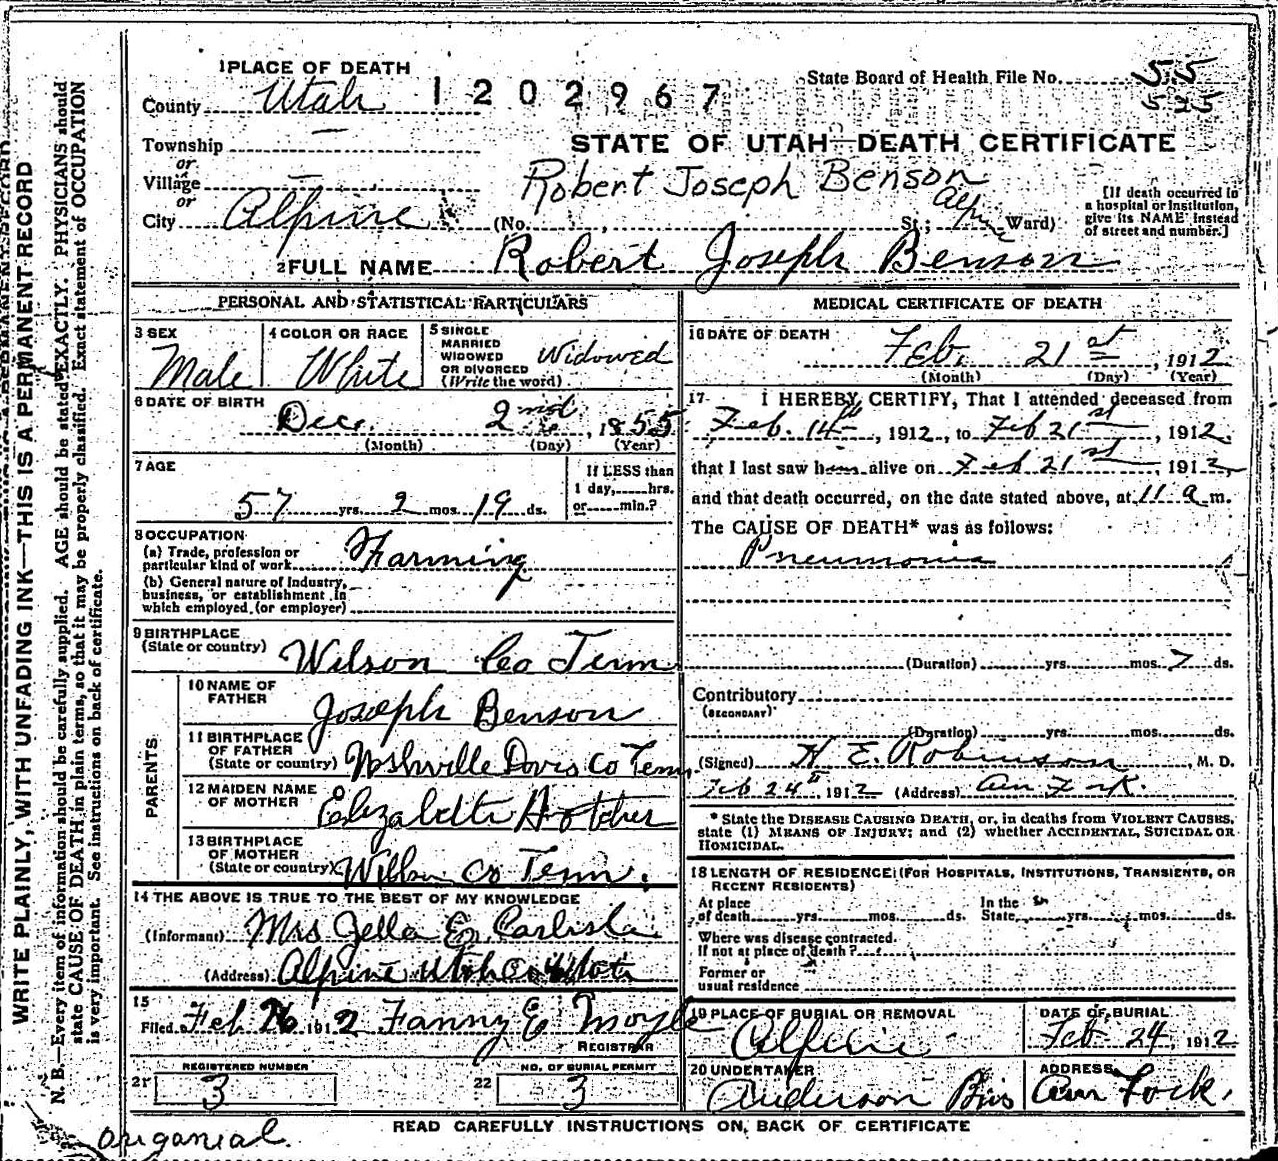 1 PLACE OF DEATH
1202967
State Board of Health File No. 55
525
County Utah
STATE OF UTAH—DEATH CERTIFICATE
Township —
or
Village —
or
City Alpine
Robert Joseph Benson
(No. , St; Ward)
[If death occurred in a hospital or institution, give its NAME instead of street and number.]
2 FULL NAME Robert Joseph Benson
PERSONAL AND STATISTICAL PARTICULARS
3 SEX
Male
4 COLOR OR RACE
White
5 SINGLE
MARRIED
WIDOWED
OR DIVORCED
(Write the word)
Widowed
6 DATE OF BIRTH
Dec. 2nd, 1855
(Month) (Day) (Year)
7 AGE
57 yrs. 2 mos. 19 ds.
If LESS than
1 day, hrs.
or min.?
8 OCCUPATION
(a) Trade, profession or
particular kind of work Farming
(b) General nature of industry,
business, or establishment in
which employed (or employer)
9 BIRTHPLACE
(State or country) Wilson Co Tenn
PARENTS
10 NAME OF
FATHER
Joseph Benson
11 BIRTHPLACE
OF FATHER
(State or country) Nashville Davis Co Tenn
12 MAIDEN NAME
OF MOTHER
Elizabeth
13 BIRTHPLACE
OF MOTHER
(State or country) Wilson Co Tenn.
14 THE ABOVE IS TRUE TO THE BEST OF MY KNOWLEDGE
(Informant) Mrs E. Carlisle
(Address) Alpine Utah Co
15
Filed Feb 26 1912 Fanny E Moyle
REGISTRAR
REGISTERED NUMBER
21 3
NO. OF BURIAL PERMIT
22 3
MEDICAL CERTIFICATE OF DEATH
16 DATE OF DEATH
Feb. 21st, 1912
(Month) (Day) (Year)
17 I HEREBY CERTIFY, That I attended deceased from
Feb. 14th, 1912, to Feb 21st, 1912.
that I last saw him alive on Feb 21st, 1912,
and that death occurred, on the date stated above, at 11 a m.
The CAUSE OF DEATH* was as follows:
Pneumonia
(Duration) yrs. mos. 7 ds.
Contributory
(SECONDARY)
(Duration) yrs. mos. ds.
(Signed) H E. Robinson, M. D.
Feb 24, 1912 (Address) Am Fork.
* State the DISEASE CAUSING DEATH, or, in deaths from VIOLENT CAUSES,
state (1) MEANS OF INJURY; and (2) whether ACCIDENTAL, SUICIDAL OR
HOMICIDAL.
18 LENGTH OF RESIDENCE (FOR HOSPITALS, INSTITUTIONS, TRANSIENTS, OR
RECENT RESIDENTS)
At place
of death yrs. mos. ds.
In the
State, yrs. mos. ds.
Where was disease contracted.
If not at place of death?
Former or
usual residence
19 PLACE OF BURIAL OR REMOVAL
Alpine
DATE OF BURIAL
Feb 24, 1912
20 UNDERTAKER
Anderson Bros
ADDRESS
Am Fork.
READ CAREFULLY INSTRUCTIONS ON BACK OF CERTIFICATE
origanial.
WRITE PLAINLY, WITH UNFADING INK—THIS IS A PERMANENT RECORD
N. B.—Every item of information should be carefully supplied. AGE should be stated EXACTLY. PHYSICIANS should
state CAUSE OF DEATH in plain terms, so that it may be properly classified. Exact statement of OCCUPATION
is very important. See instructions on back of certificate.